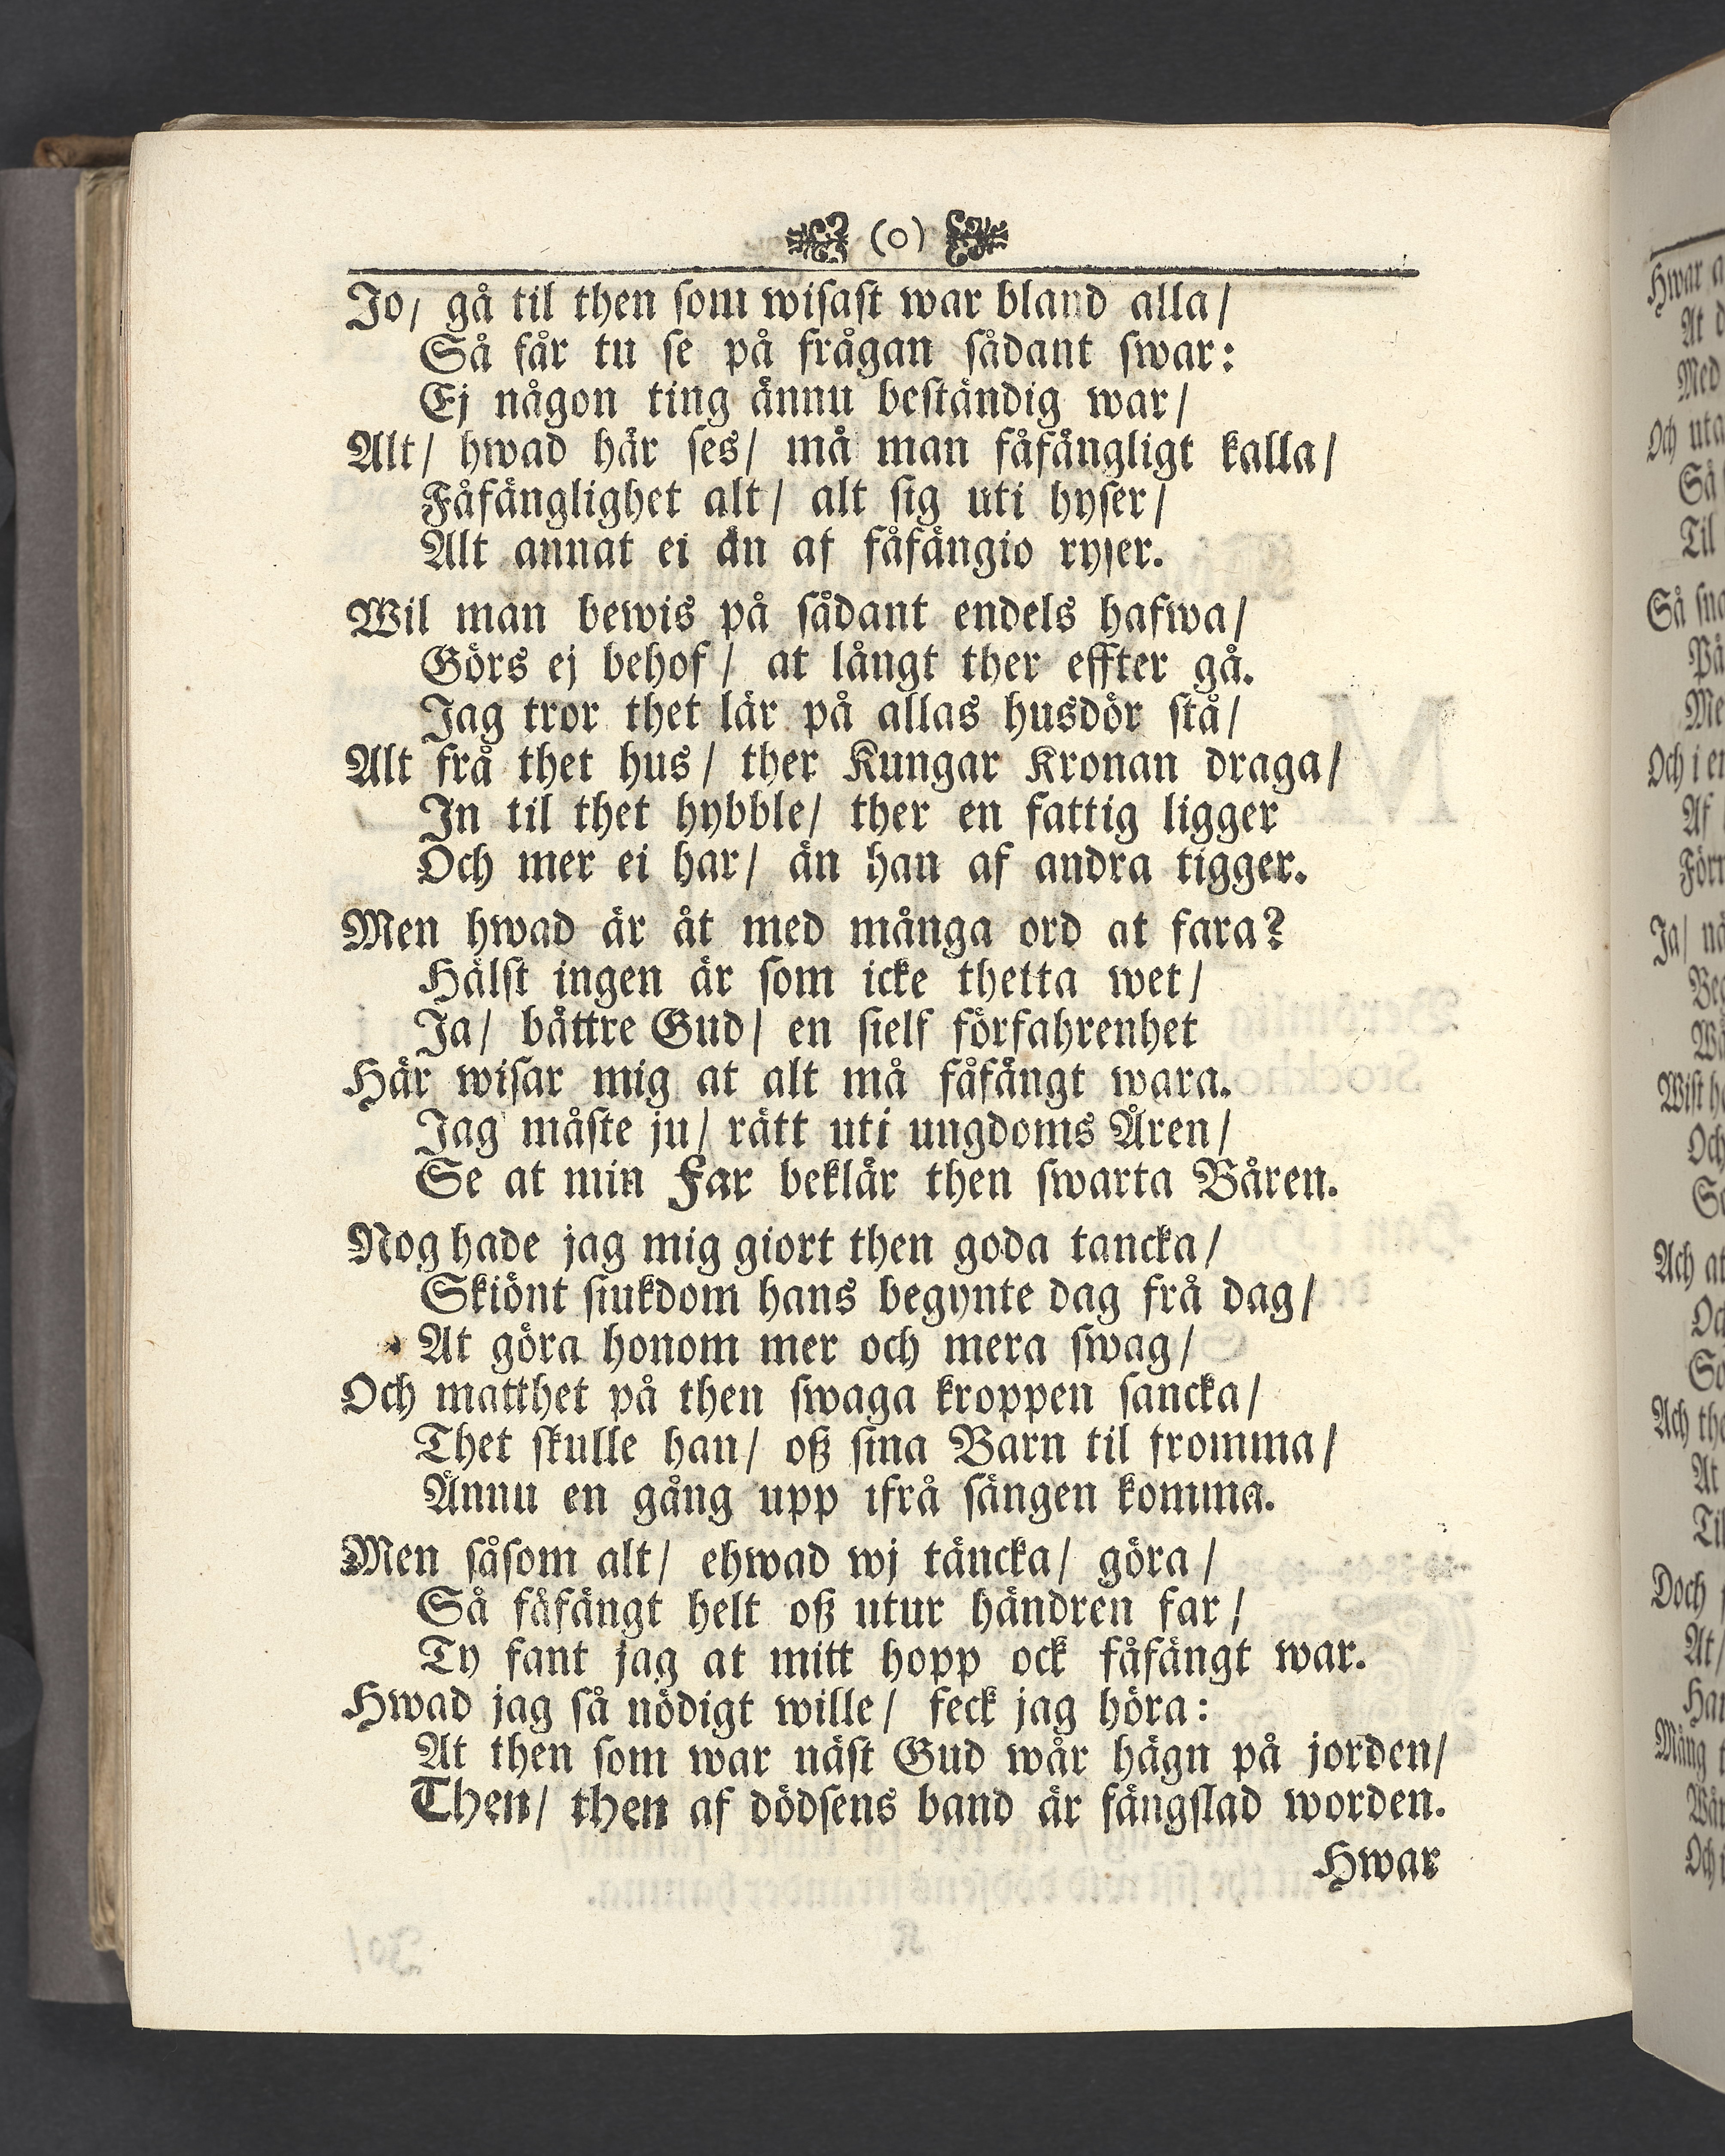 (o)
Jo/ gå til then ſom wiſaſt war bland alla/
Så får tu ſe på frågan ſådant ſwar:
Ej någon ting ännu beſtändig war/
Alt/ hwad här ſes/ må man fåfängligt kalla/
Fåfänglighet alt/ alt ſig uti hyſer/
Alt annat ei än af fåfängio ryſer.
Wil man bewis på ſådant endels hafwa/
Görs ej behof/ at långt ther effter gå.
Jag tror thet lär på allas husdör ſtå/
Alt frå thet hus/ ther Kungar Kronan draga/
In til thet hybble/ ther en fattig ligger
Och mer ei har/ än han af andra tigger.
Men hwad är åt med många ord at fara?
Hälſt ingen är ſom icke thetta wet/
Ja/ bättre Gud/ en ſielf förfahrenhet
Här wiſar mig at alt må fåfängt wara.
Jag måſte ju/ rätt uti ungdoms Åren/
Se at min Far beklär then ſwarta Båren.
Nog hade jag mig giort then goda tancka/
Skiönt ſiukdom hans begynte dag frå dag/
At göra honom mer och mera ſwag/
Och matthet på then ſwaga kroppen ſancka/
Thet ſkulle han/ oß ſina Barn til fromma/
Ännu en gång upp ifrå ſängen komma.
Men ſåſom alt/ ehwad wj täncka/ göra/
Så fåfängt helt oß utur händren far/
Ty fant jag at mitt hopp ock fåfängt war.
Hwad jag ſå nödigt wille/ feck jag höra:
At then ſom war näſt Gud wår hägn på jorden/
Then/ then af dödſens band är fängſlad worden.
Hwar